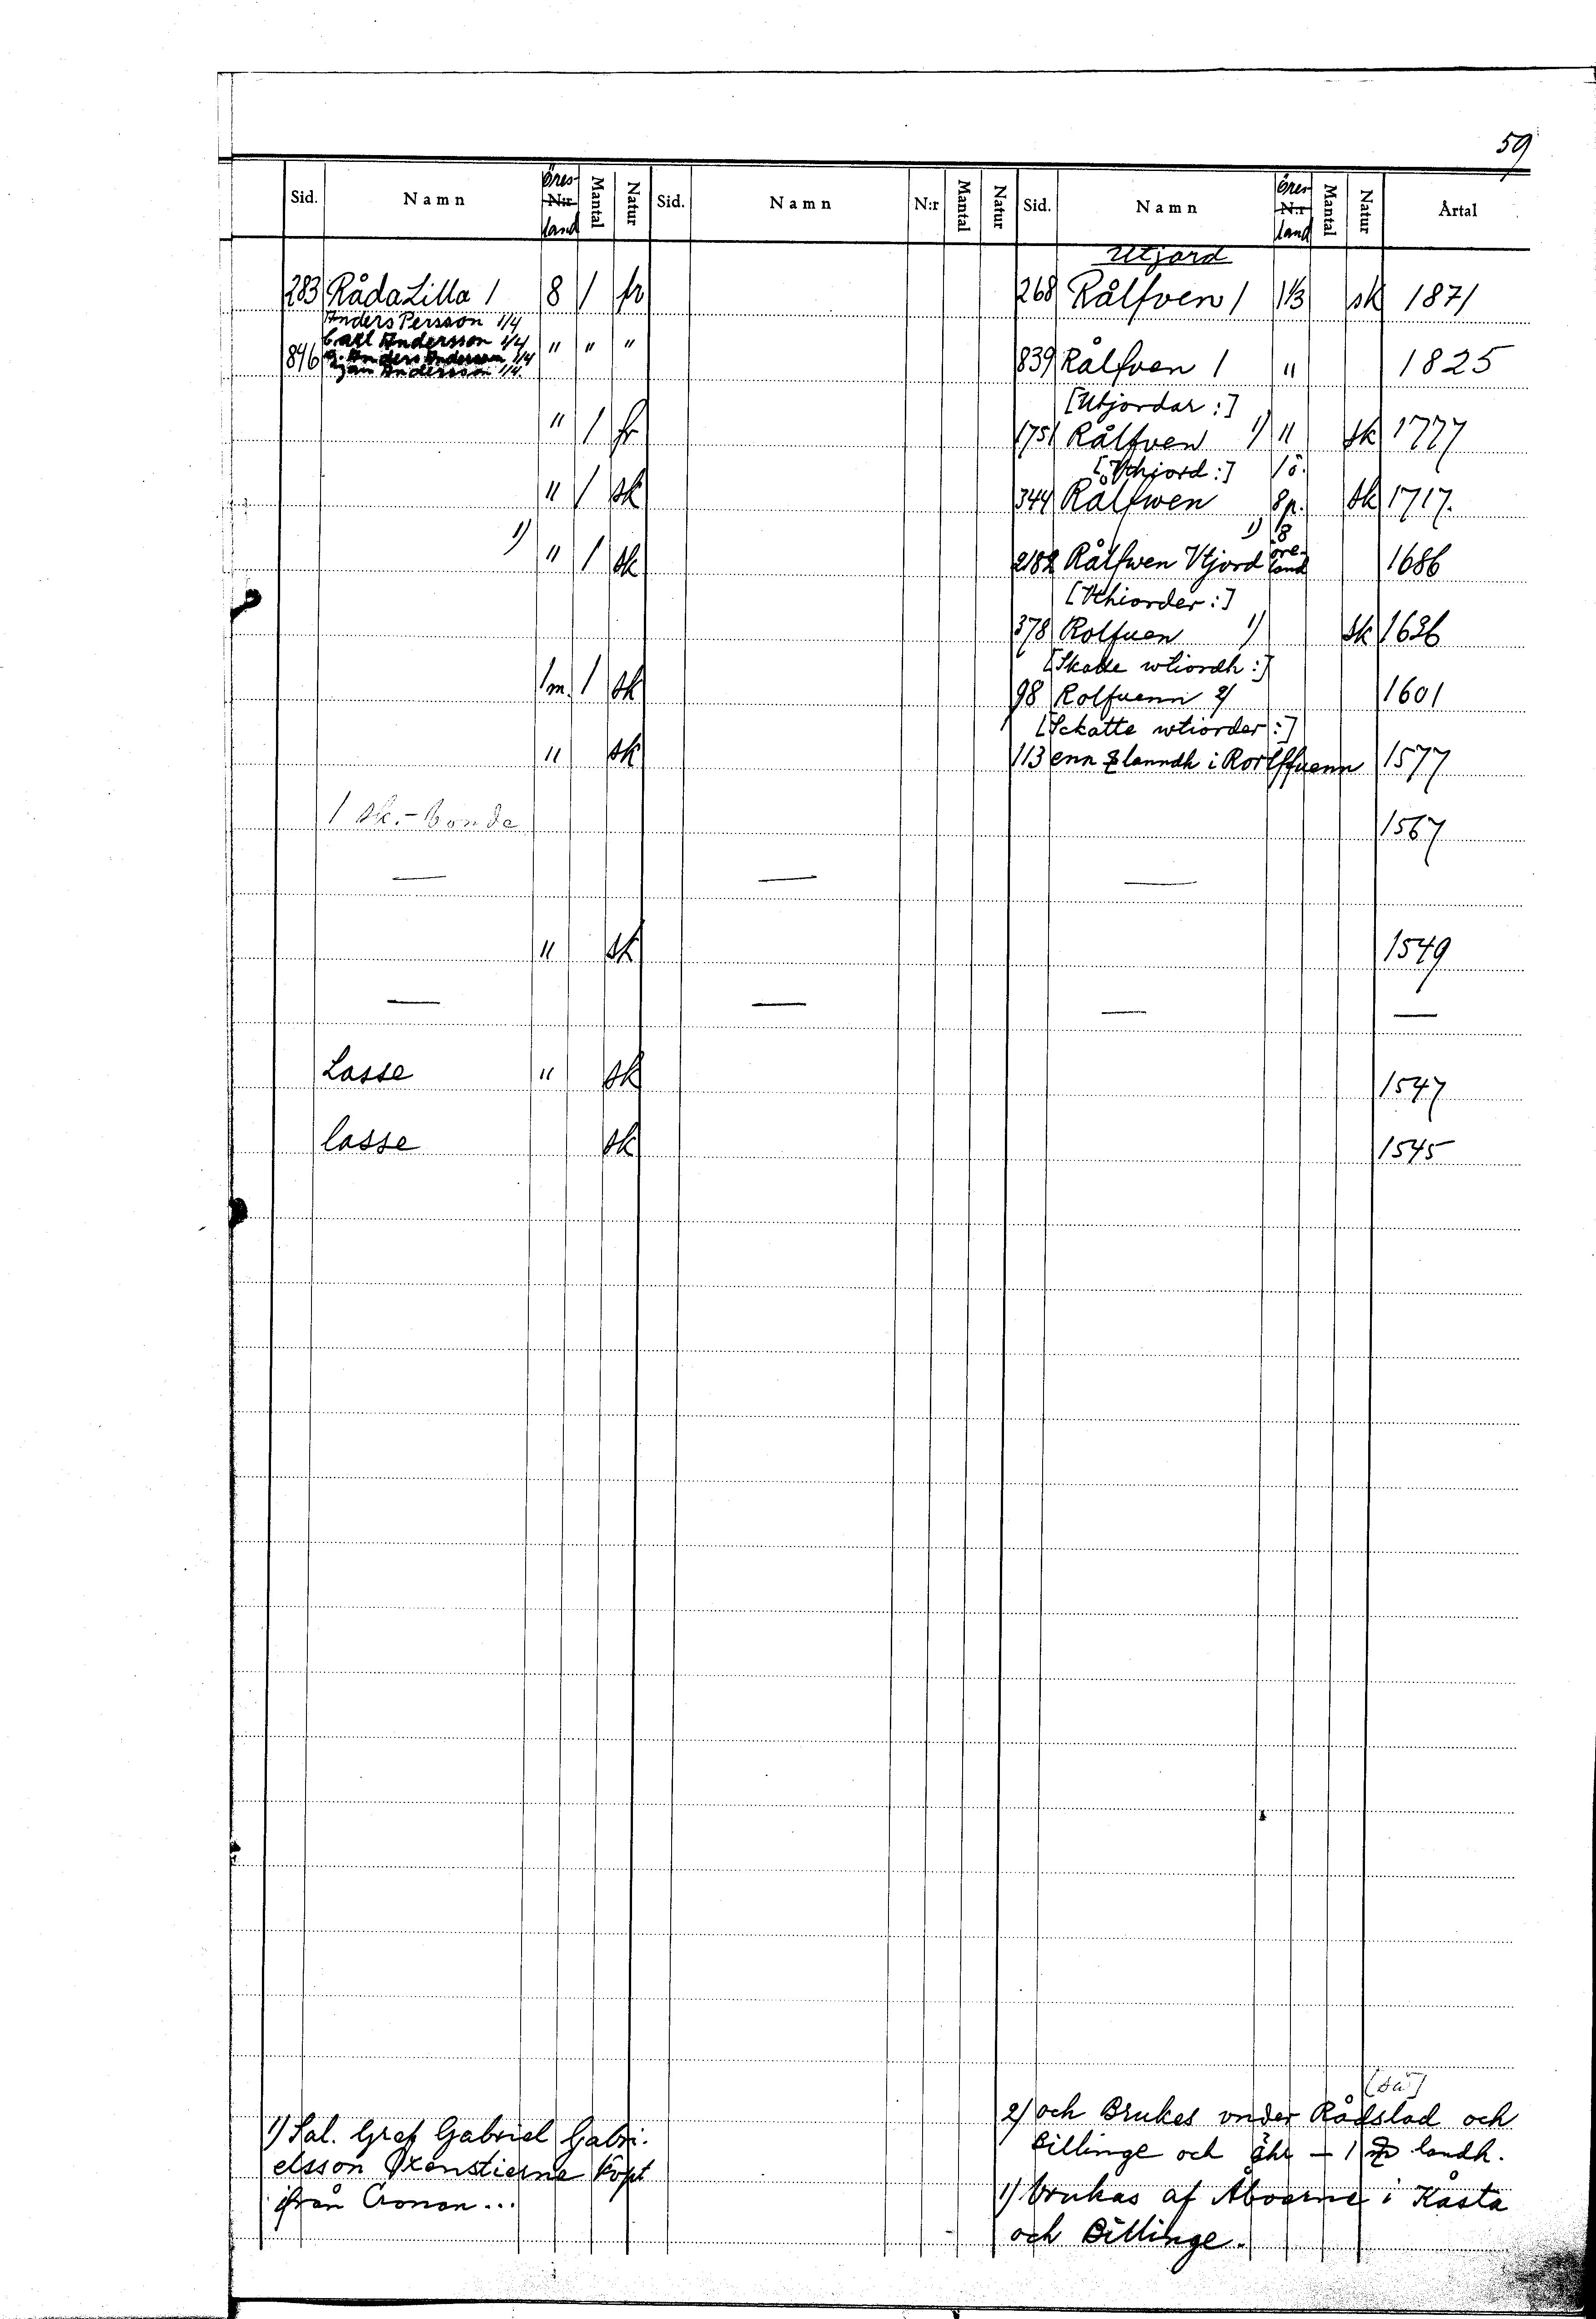 59
Sid. Namn Öres- N:r land Mantal Natur Sid. Namn N:r Mantal Natur Sid. Namn Öres- N:r land Mantal Natur Årtal
Utjord
283 Råda Lilla 1 8 1 fr 268 Rålfven 1 1 1/3 sk 1871
Anders Persson 1/4
Carl Andersson 1/4
G. Anders Andersson 1/4
846 Jan Andersson 1/4 " " " 839 Rålfven 1 " 1825
[Utjordar:]
" 1 fr 1751 Rålfven 1) " sk 1777
[Vthiord:] 1 ö.
" 1 sk 344 Rålfwen 8p. sk 1717.
1) " 1 sk 2182 Rålfwen Vtjord 1) 8 öre- land 1686
[Vthiorder:]
378 Rolfuen 1) sk 1636
[Skatte wtiordh:]
1 m. 1 sk 98 Rolfuenn 2) 1601
[Sckatte wtiorder:]
" sk 113 enn lanndh i Rorlffuenn 1577
1 sk.-bonde 1567
— — —
" sk 1549
— — — —
Lasse " sk 1547
lasse sk 1545
1) Sal. Gref Gabriel Gabri-
elsson Oxenstierna köpt
ifrån Cronan...
[så]
2) och Brukes vnder Rådslad och
Billinge och ähr — 1 landh.
1) brukas af Åboerne i Kåsta
och Billinge.